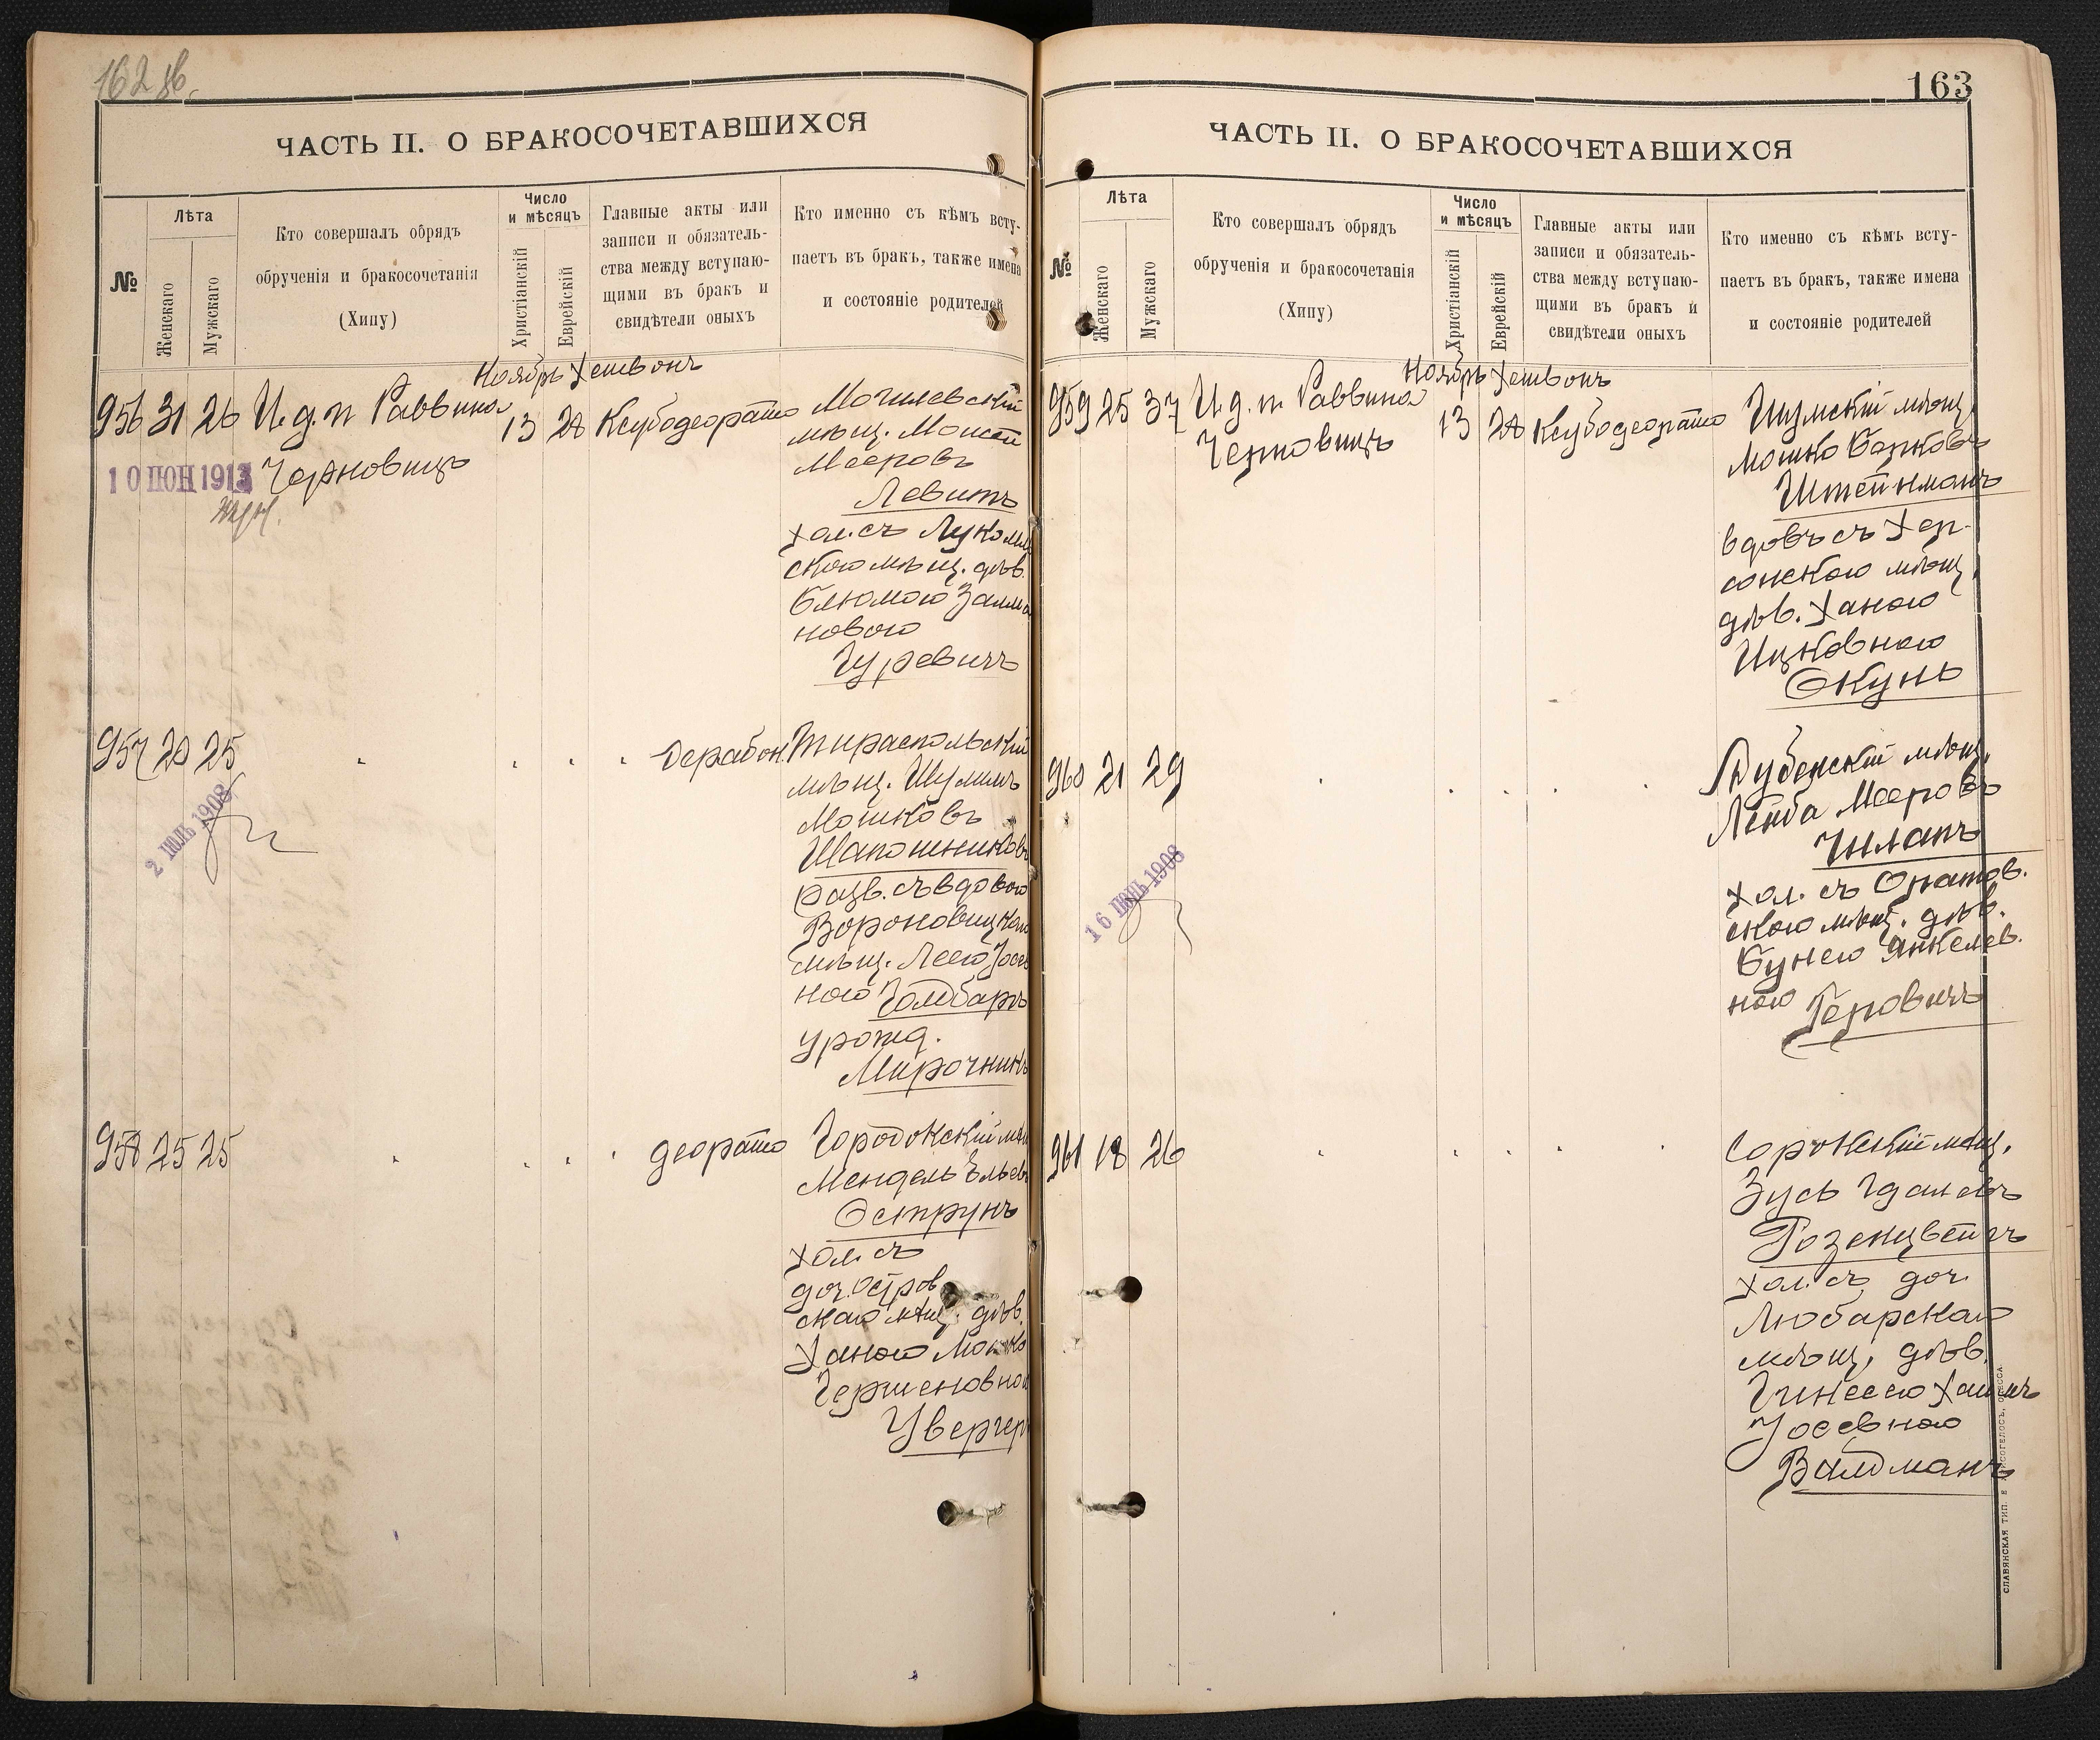 162 об.
ЧАСТЬ II. О БРАКОСОЧЕТАВШИХСЯ
№
Лѣта
Женскаго
Мужскаго
Кто совершалъ обрядъ
обрученія и бракосочетанія
(Хипу)
Число
и мѣсяцъ
Христіанскій
Еврейскій
Главные акты или
записи и обязатель-
ства между вступаю-
щими въ бракъ и
свидѣтели оныхъ
Кто именно съ кѣмъ всту-
паетъ въ бракъ, также имена
и состояніе родителей
Ноябрь Хешвонъ
956 31 26 И. д. п Раввина 13 28 Ксубодеорато
Черновицъ
10 ІЮН 1913
Могилевскій
мѣщ. Моисей
Мееровъ
Левитъ
хол. съ Лукомль
скою мѣщ. дѣв.
Блюмою Залма
новою
Гуревичъ
957 20 25 Дерабон.
2 ІЮЛЬ 1908
Тираспольскій
мѣщ. Шулимъ
Мошковъ
Шапошниковъ
разв. съ вдовою
Вороновицкою
мѣщ. Леею Іосев
ною Голдбаръ
урожд.
Мирочникъ
958 25 25 деорато
Городокскій мѣщ
Мендель Эльевъ
Острунъ
хол. съ
доч. Остров
скаго мѣщ. дѣв.
Ханою Мошко
Гершеновною
Увергер
163
ЧАСТЬ II. О БРАКОСОЧЕТАВШИХСЯ
№
Лѣта
Женскаго
Мужскаго
Кто совершалъ обрядъ
обрученія и бракосочетанія
(Хипу)
Число
и мѣсяцъ
Христіанскій
Еврейскій
Главные акты или
записи и обязатель-
ства между вступаю-
щими въ бракъ и
свидѣтели оныхъ
Кто именно съ кѣмъ всту-
паетъ въ бракъ, также имена
и состояніе родителей
Ноябрь Хешвонъ
959 25 37 И. д. п. Раввина 13 28 Ксубодеорато
Черновицъ
Шумскій мѣщ.
Мошко Берковъ
Штейнманъ
вдовъ съ Хер-
сонскою мѣщ.
дѣв. Ханою
Ицковною
Окунь
960 21 29
16 ІЮНЬ 1908
Дубенскій мѣщ.
Лейба Мееровъ
Чилапъ
хол. съ Оратов.
скою мѣщ. дѣв.
Бунею Янкелев.
ною Геровичъ
961 18 26
Сорокскій мѣщ.
Зусь Гдалевъ
Розенцвейгъ
хол. съ доч.
Любарскаго
мѣщ. дѣв.
Гинесею Хаимъ
Іосевною
Валдманъ
СЛАВЯНСКАЯ ТИП. Е. ХРИСОГЕЛОСЪ, ОДЕССА